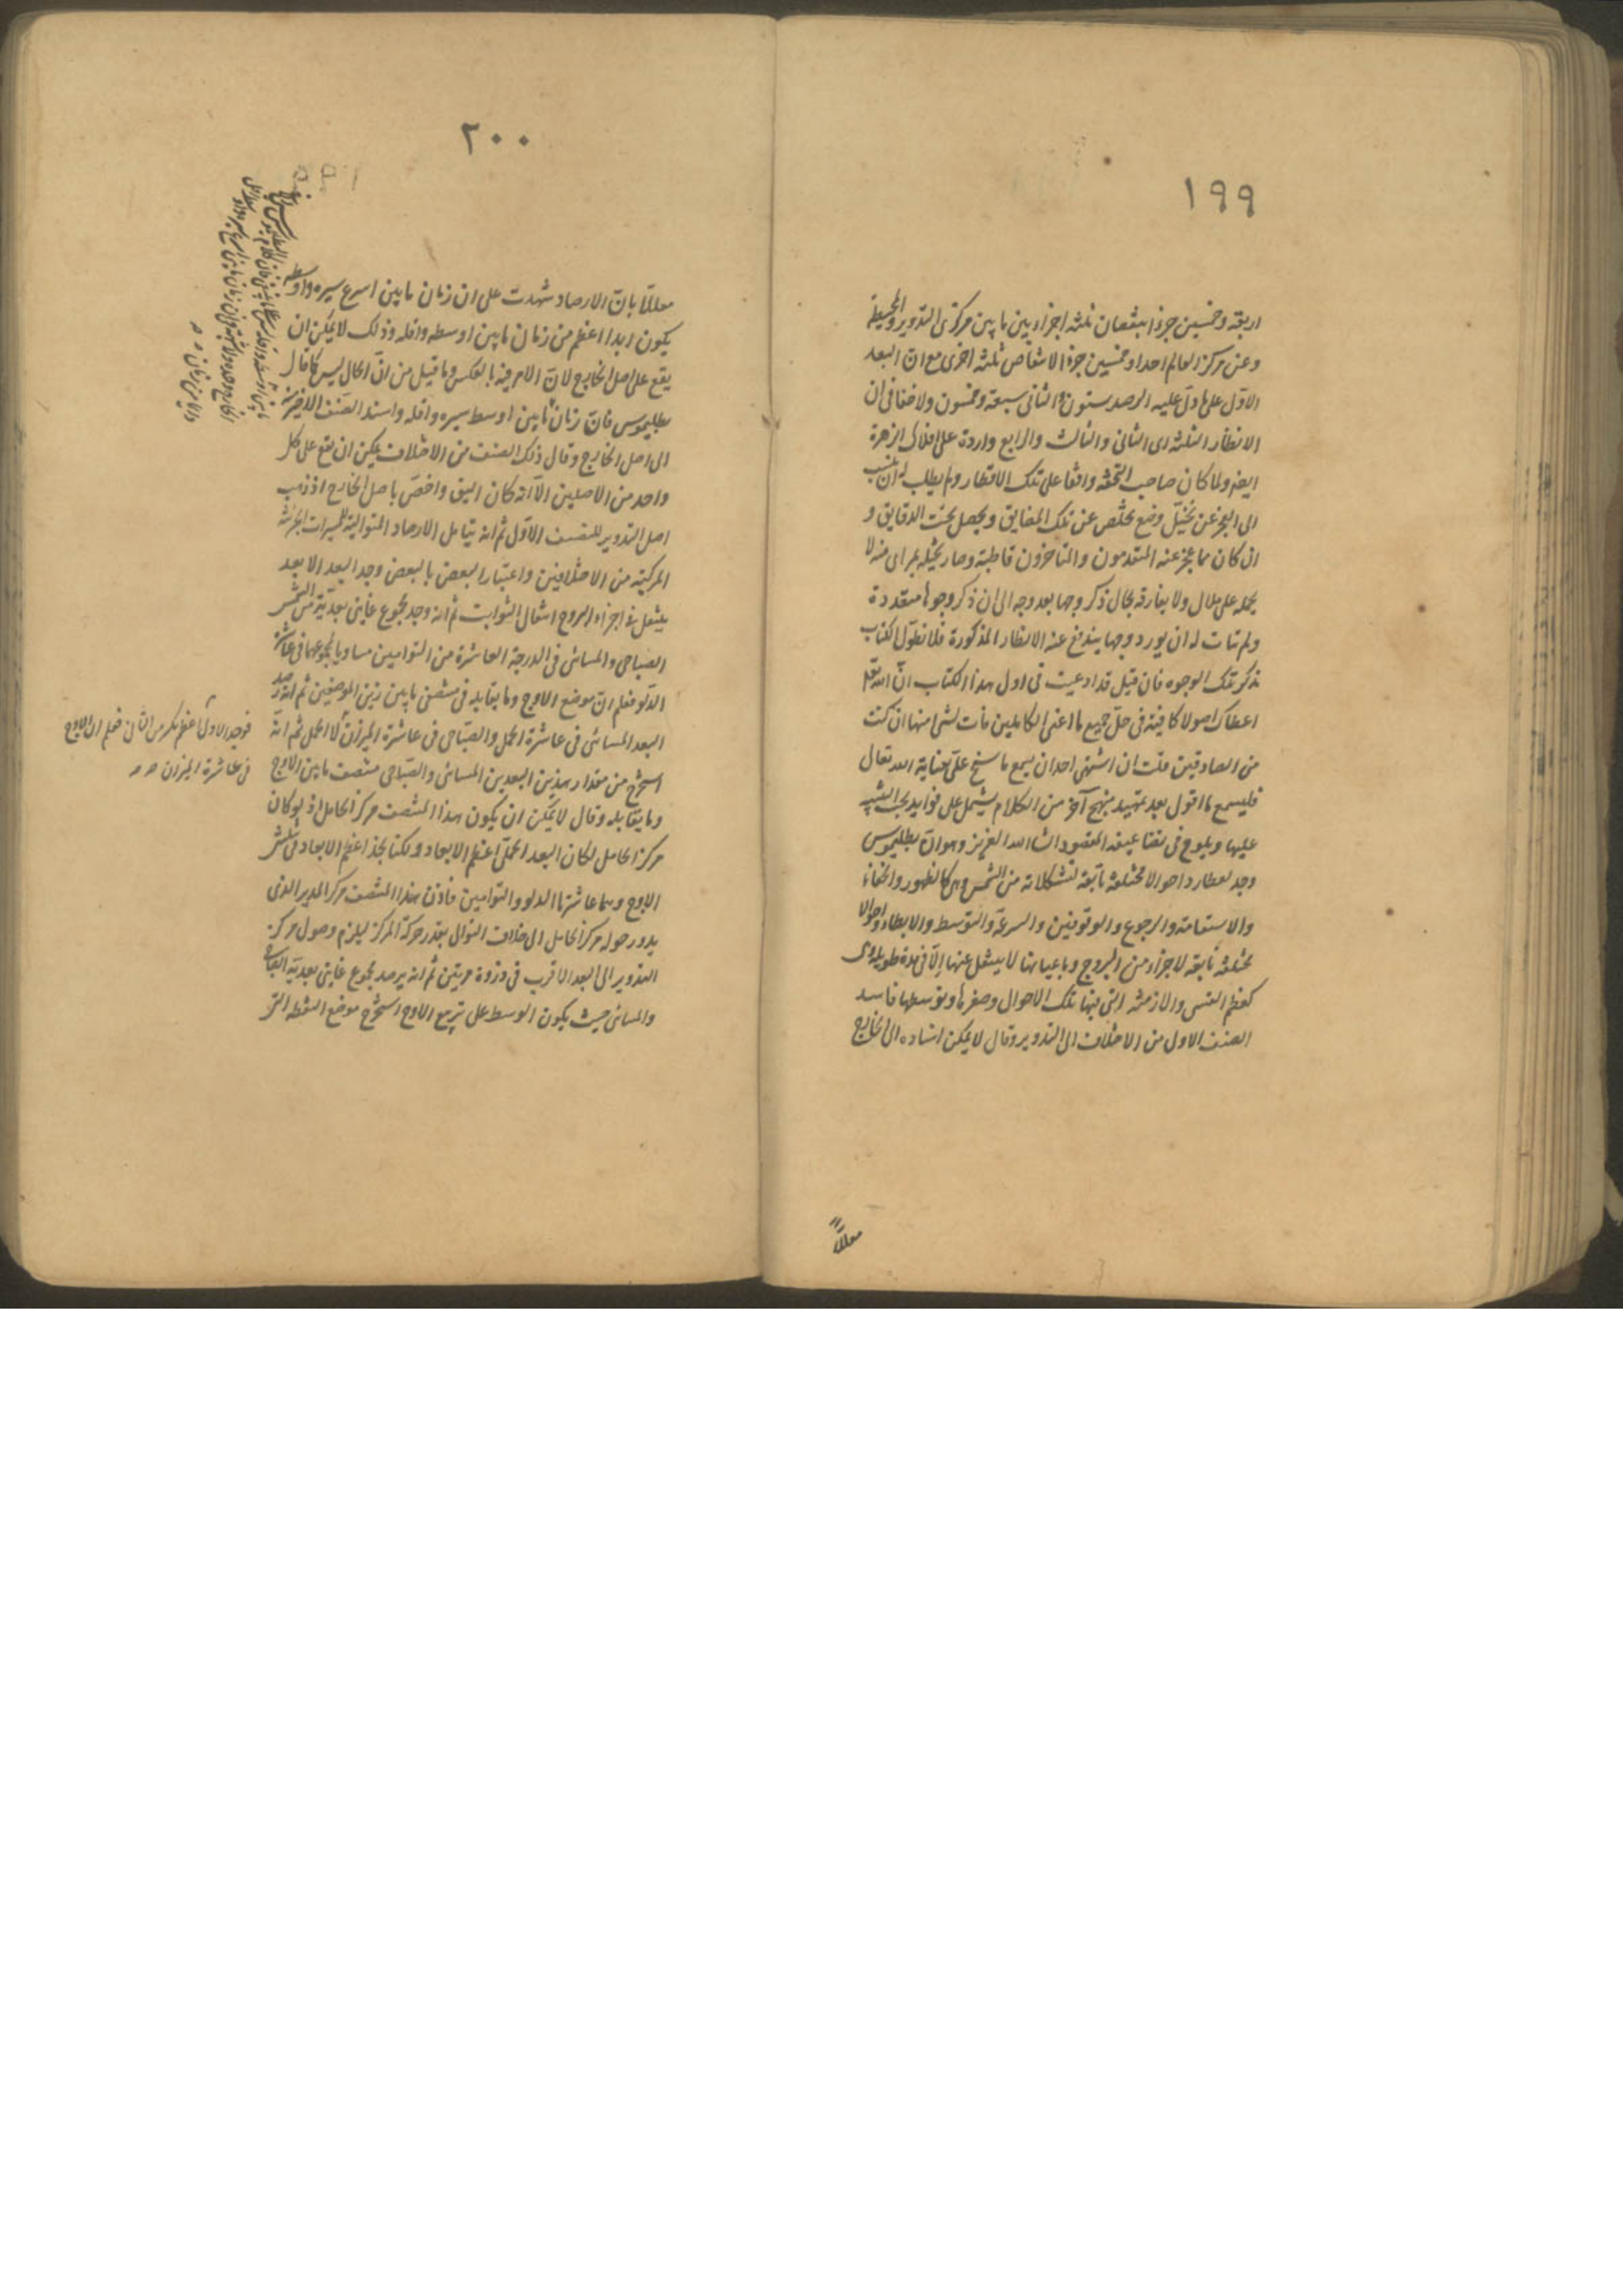 ١٩٩
اربعة وخمسين جزءا بنقصان ثلثه اجزاء بين ما بين مركزى التدوير والمحيطة
وعن مركز العالم احدا وخمسين جزءا لانتقاص ثلثه اخرى مع ان البعد
الاول على ما دل عليه الرصد ستون والثانى سبعة وخمسون ولا خفا فى ان
الانظار الثلثه اى الثانى والثالث والرابع واردة على افلاك الزهرة
ايضا ولما كان صاحب التحفه واقفا على تلك الانظار ولم يطلب له ان ينسب
الى العجز عن تخيل وضع يخلص عن تلك المضايق ويحصل تحت الدقايق و
ان كان مما عجز عنه المتقدمون والمتاخرون قاطبة وصار تخيله بمراى منه لا
يمله على ملال ولا يفارقه بحال ذكر وجها بعد وجه الى ان ذكر وجوها متعددة
ولم يتات له ان يورد وجها يندفع عنه الانظار المذكورة فلم نطول الكتاب
بذكر تلك الوجوه فان قيل قد ادعيت فى اول هذا الكتاب ان الله تعالى
اعطاك اصولا كافية فى حل جميع ما اعيى الكاملين فات بشى منها ان كنت
من الصادقين قلت ان اشتهى احد ان يسمع ما سنح على بعناية الله تعالى
فليسمع ما اقول بعد تمهيد منهج آخر من الكلام يشتمل على فوايد يجب التنبيه
عليها ويلوح فى تضاعيفه المقصود ان شا الله العزيز وهو ان بطلميوس
وجد لعطارد احوالا مختلفة تابعة لتشكلاته من الشمس وهى كالظهور والخفاء
والاستقامة والرجوع والوقوفين والسرعة والتوسط والابطاء واحوالا
مختلفه تابعة لاجزاء من البروج وباعيانها لا ينتقل عنها الا فى مدة طويلة وهى
كعظم القسى والازمنة التى فيها تلك الاحوال وصغرها وتوسطها فاسند
الصنف الاول من الاختلاف الى التدوير وقال لا يمكن اسناده الى الخارج
معللا
٢٠٠
معللا بان الارصاد شهدت على ان زمان ما بين اسرع سيره واوسطه
يكون ابدا اعظم من زمان ما بين اوسطه واقله وذلك لا يمكن ان
يقع على اصل الخارج لان الامر فيه بالعكس وما قيل من ان الحال ليس كما قال
بطلميوس فان زمان ما بين اوسط سيره واقله واسند الصنف الاخير منه
الى اصل الخارج وقال ذلك الصنف من الاختلاف يمكن ان يقع على كل
واحد من الاصلين الا انه كان اليق واخص باصل الخارج اذ ذهب
اصل التدوير للصنف الاول ثم انه بتامل الارصاد المتوالية للمسيرات الجزئية
المركبة من الاختلافين واعتبار البعض بالبعض وجد البعد الابعد
ينتقل فى اجزاء البروج انتقال الثوابت ثم انه وجد مجموع غايتى بعديه من الشمس
الصباحى والمسائى فى الدرجة العاشرة من التوامين مساويا لمجموعهما فى عاشرة
الدلو فعلم ان موضع الاوج وما يقابله فى منتصف ما بين ذينك الموضعين ثم انه رصد
البعد المسائى فى عاشرة الحمل والصباحى فى عاشرة الميزان لا الحمل ثم انه
استخرج من مقدار هذين البعدين المسائى والصباحى منتصف ما بين الاوج
وما يقابله وقال لا يمكن ان يكون هذا المنتصف مركز الحامل اذ لو كان
مركز الحامل لكان البعد الحملى اعظم الابعاد ولكنا نجد اعظم الابعاد فى تثليثى
الاوج وهما عاشرتا الدلو والتوامين فاذن هذا المنتصف مركز المدير الذى
يدور حوله مركز الحامل الى خلاف التوالى بقدر حركة المركز ليلزم وصول مركز
التدوير الى البعد الاقرب فى دورة مرتين ثم انه برصد مجموع غايتى بعديه الصباحى
والمسائى حيث يكون الوسط على تربيع الاوج استخرج موضع النقطه التى
فوجد الاول اعظم بكثير من الثانى فعلم ان الاوج
فى عاشرة الميزان